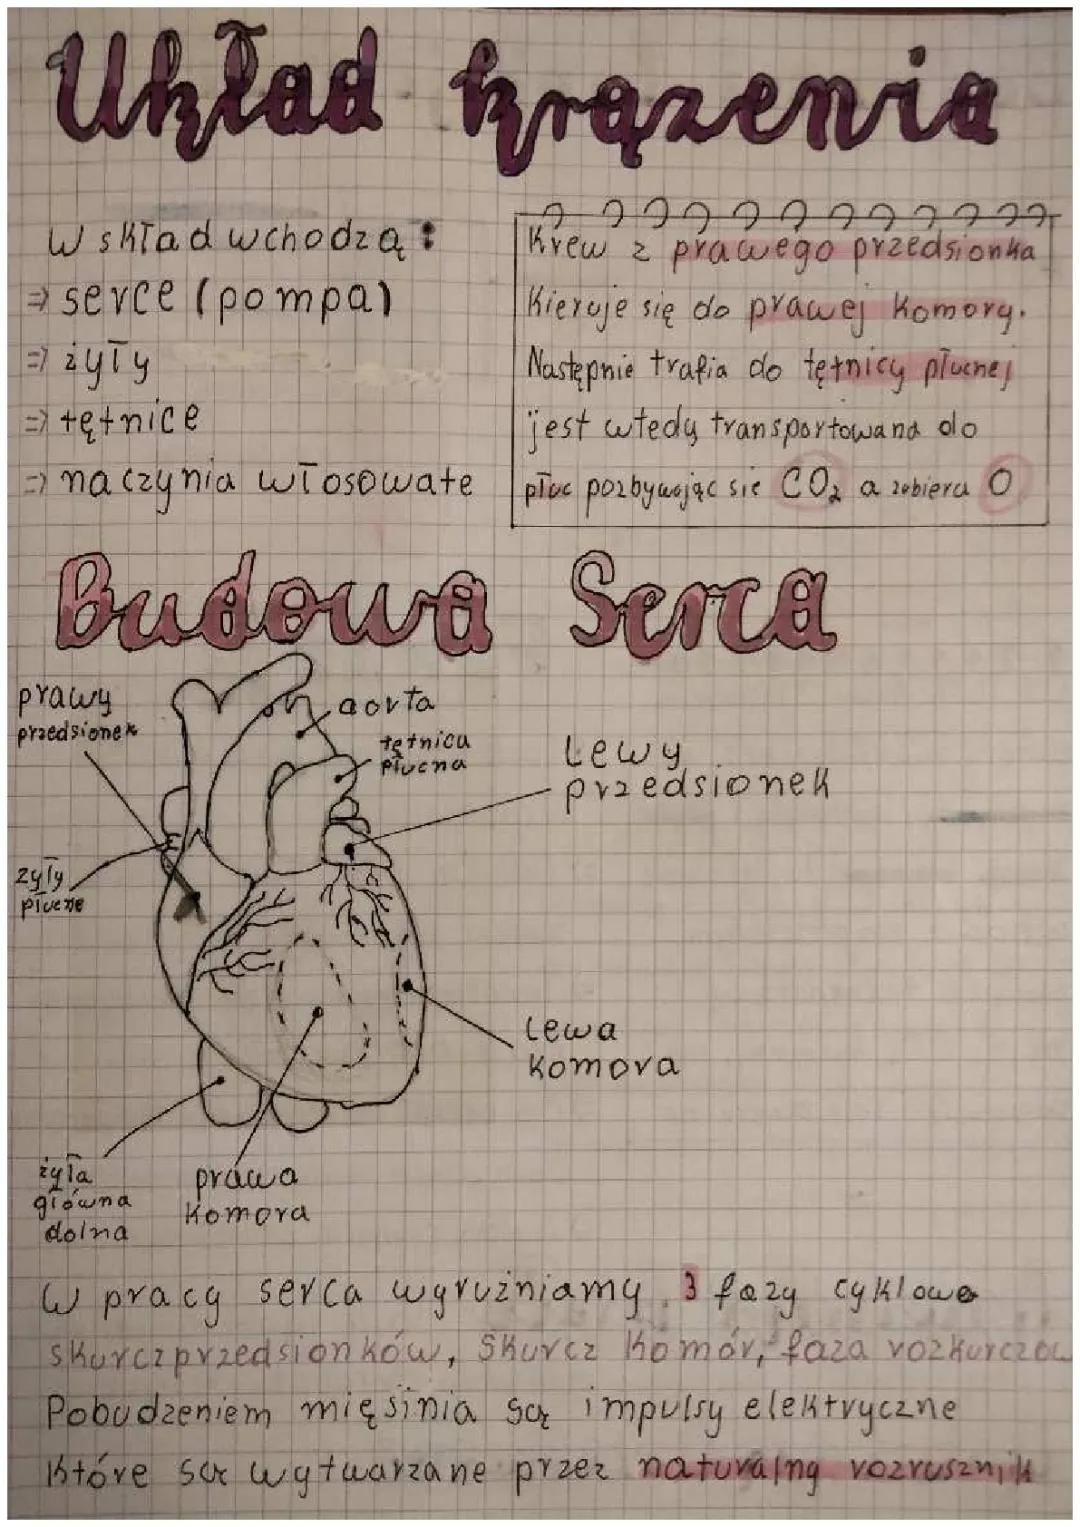 Układ krązenia
W skład wchodzą:
=> serce (pompa)
=> żyły
=> tętnice
=> naczynia włosowate
Krew z prawego przedsionka
Kieruje się do prawej Komory.
Następnie trafia do tętnicy płucnej
jest wtedy transportowana do
płuc pozbywając sie CO₂ a zabiera O
Budowa Serca
prawy
przedsionek
aorta
tętnica
płucna
Lewy
przedsionek
żyły
płucne
Lewa
Komora
żyła
główna
dolna
prawa
Komora
W pracy serca wyrużniamy 3 fazy cyklowe
skurcz przedsionków, Skurcz Komór, faza rozkurczow
Pobudzeniem mięsinia są impulsy elektryczne
Które są wytwarzane przez naturalny rozrusznik